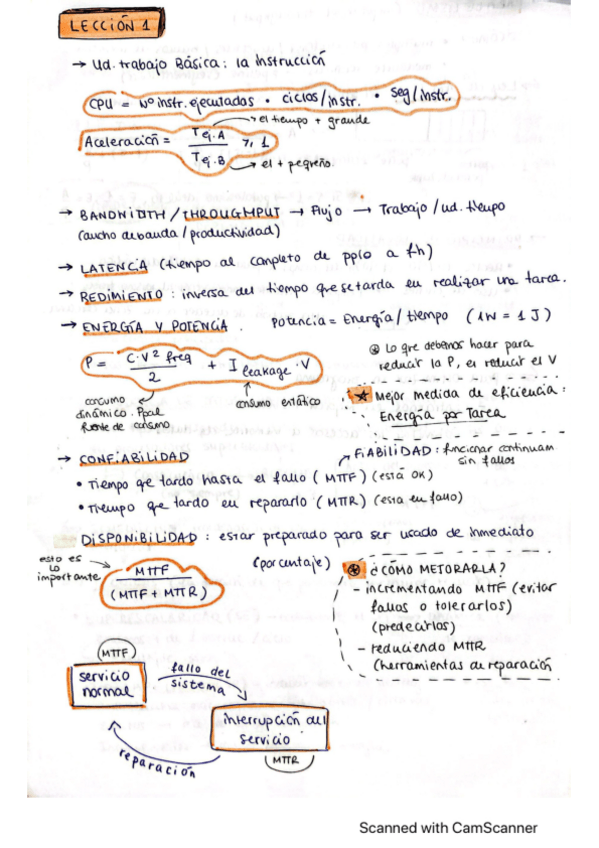 LECCIÓN 1
→ Ud. trabajo Básica: la instrucción
CPU = Nº instr. ejecutados • ciclos/instr. • seg/instr.
Aceleración = T ej. A / T ej. B ≥ 1
→ el tiempo + grande
→ el + pequeño.
→ BANDWIDTH / THROUGMPUT → Flujo → Trabajo / ud. tiempo
(ancho de banda / productividad)
→ LATENCIA (tiempo al completo de ppio a fih)
→ REDIMIENTO : inversa del tiempo que se tarda en realizar una tarea.
→ ENERGÍA Y POTENCIA . Potencia = Energía / tiempo ( 1W = 1 J )
P = C·V² freq / 2 + I leakage · V
consumo dinámico. Ppal fuente de consumo
consumo estático
* Lo que debemos hacer para
reducir la P, es reducir el V
★ Mejor medida de eficiencia :
Energía por Tarea
→ CONFIABILIDAD
→ FIABILIDAD : funcionar continuam
sin fallos
• Tiempo que tardo hasta el fallo ( MTTF ) (está OK)
• Tiempo que tardo en repararlo ( MTTR ) (esta en fallo)
DISPONIBILIDAD : estar preparado para ser usado de inmediato
(porcentaje)
esto es
lo
importante
MTTF
(MTTF + MTTR)
* ¿CÓMO MEJORARLA?
- incrementando MTTF (evitar
fallos o tolerarlos)
(predecirlos)
- reduciendo MTTR
(herramientas de reparación
MTTF
servicio
normal
fallo del
sistema
interrupción del
servicio
MTTR
reparación
Scanned with CamScanner